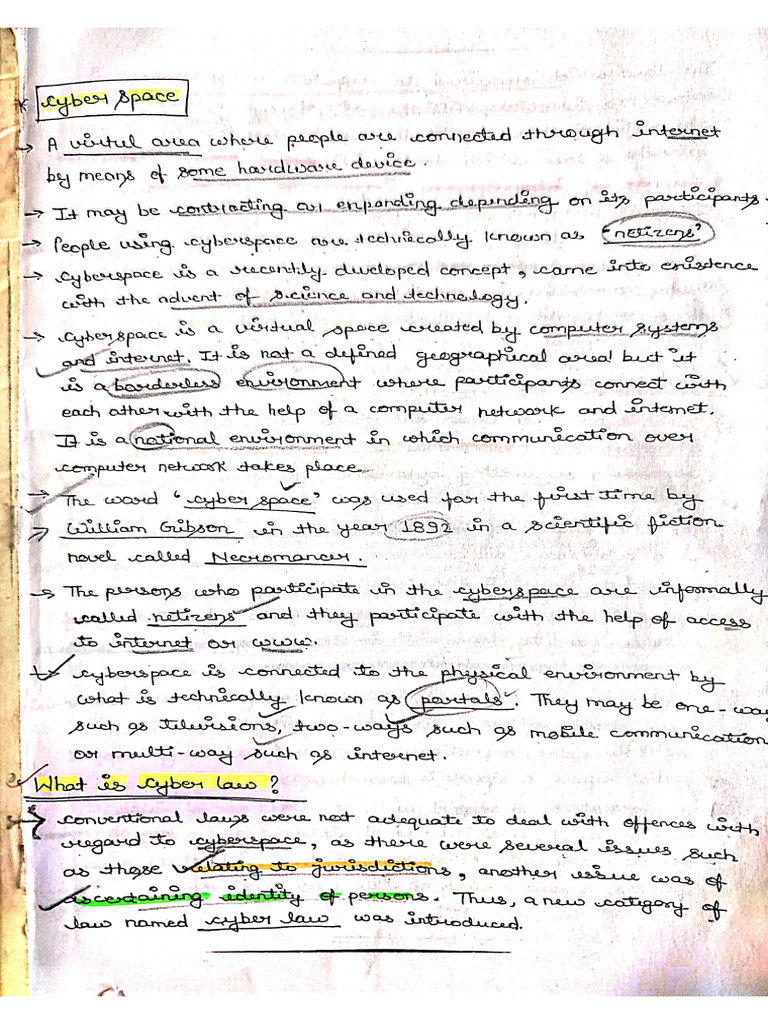 * Cyber space
→ A virtul area where people are connected through internet
by means of some hardware device.
→ It may be contracting or expanding depending on its participants.
→ People using cyberspace are technically known as "netizens"
→ Cyberspace is a recently developed concept, came into existence
with the advent of science and technology.
→ Cyberspace is a virtual space created by computer systems
and internet. It is not a defined geographical area but it
is a borderless environment where participants connect with
each other with the help of a computer network and internet.
It is a notional environment in which communication over
computer network takes place.
→ The word 'cyber space' was used for the first time by
→ William Gibson in the year 1892 in a scientific fiction
novel called Necromancer.
→ The persons who participate in the cyberspace are informally
called netizens and they participate with the help of access
to internet or www.
→ Cyberspace is connected to the physical environment by
what is technically known as portals. They may be one-way
such as televisions, two-ways such as mobile communication
or multi-way such as internet.
What is cyber law?
→ Conventional laws were not adequate to deal with offences with
regard to cyberspace, as there were several issues such
as those relating to jurisdictions, another issue was of
ascertaining identity of persons. Thus, a new category of
law named cyber law was introduced.